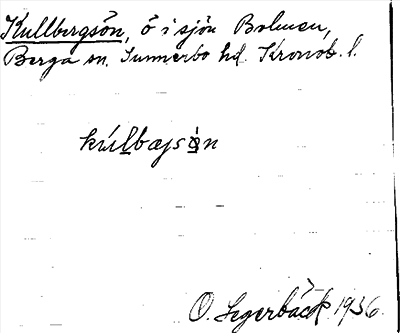 Kullbergsön, ö i sjön Bolmen,
Berga sn. Sunnerbo hd. Kronob. l.
kúlbæjsön
O. Segerbäck 1936.